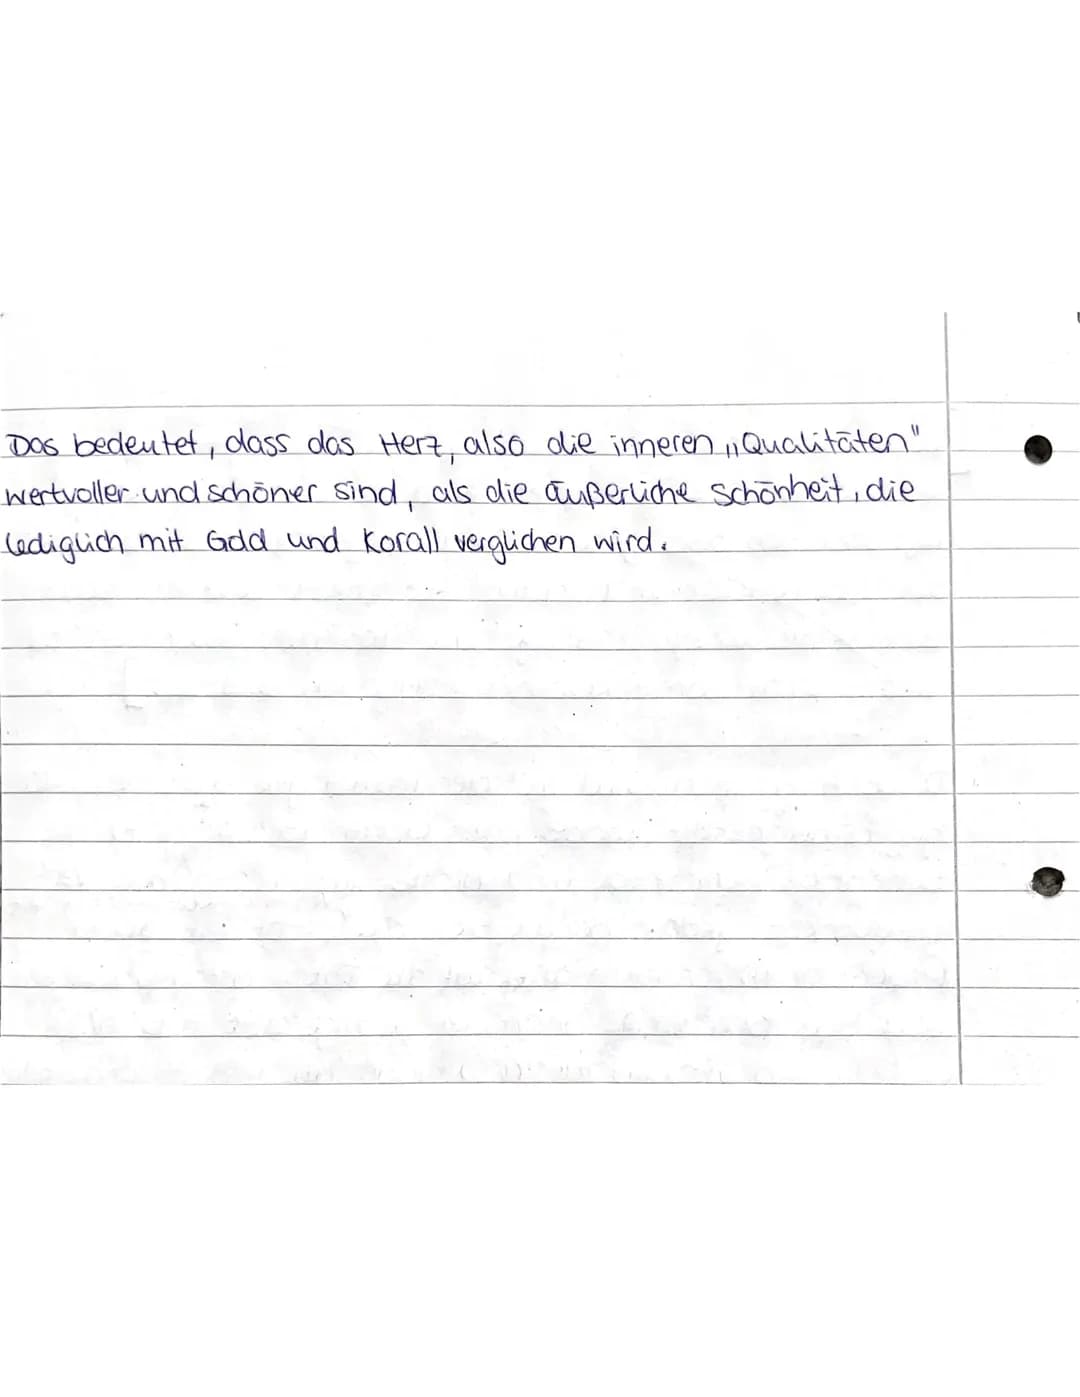 Das bedeutet, dass das Herz, also die inneren „Qualitäten"
wertvoller und schöner sind, als die äußerliche Schönheit, die
lediglich mit Gold und Korall verglichen wird.